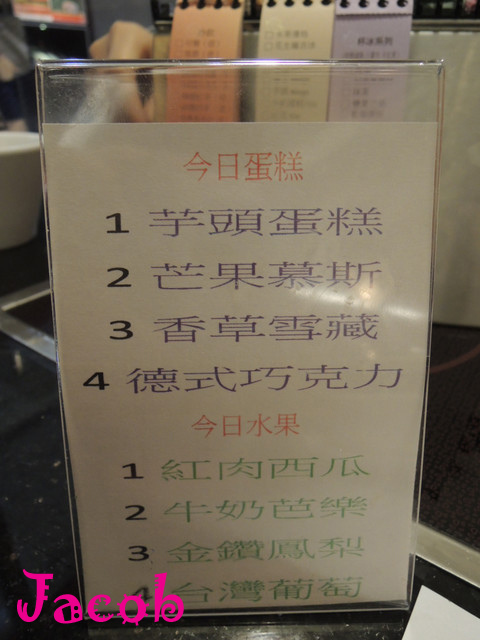 今日蛋糕
1 芋頭蛋糕
2 芒果慕斯
3 香草雪藏
4 德式巧克力
今日水果
1 紅肉西瓜
2 牛奶芭樂
3 金鑽鳳梨
4 台灣葡萄
Jacob